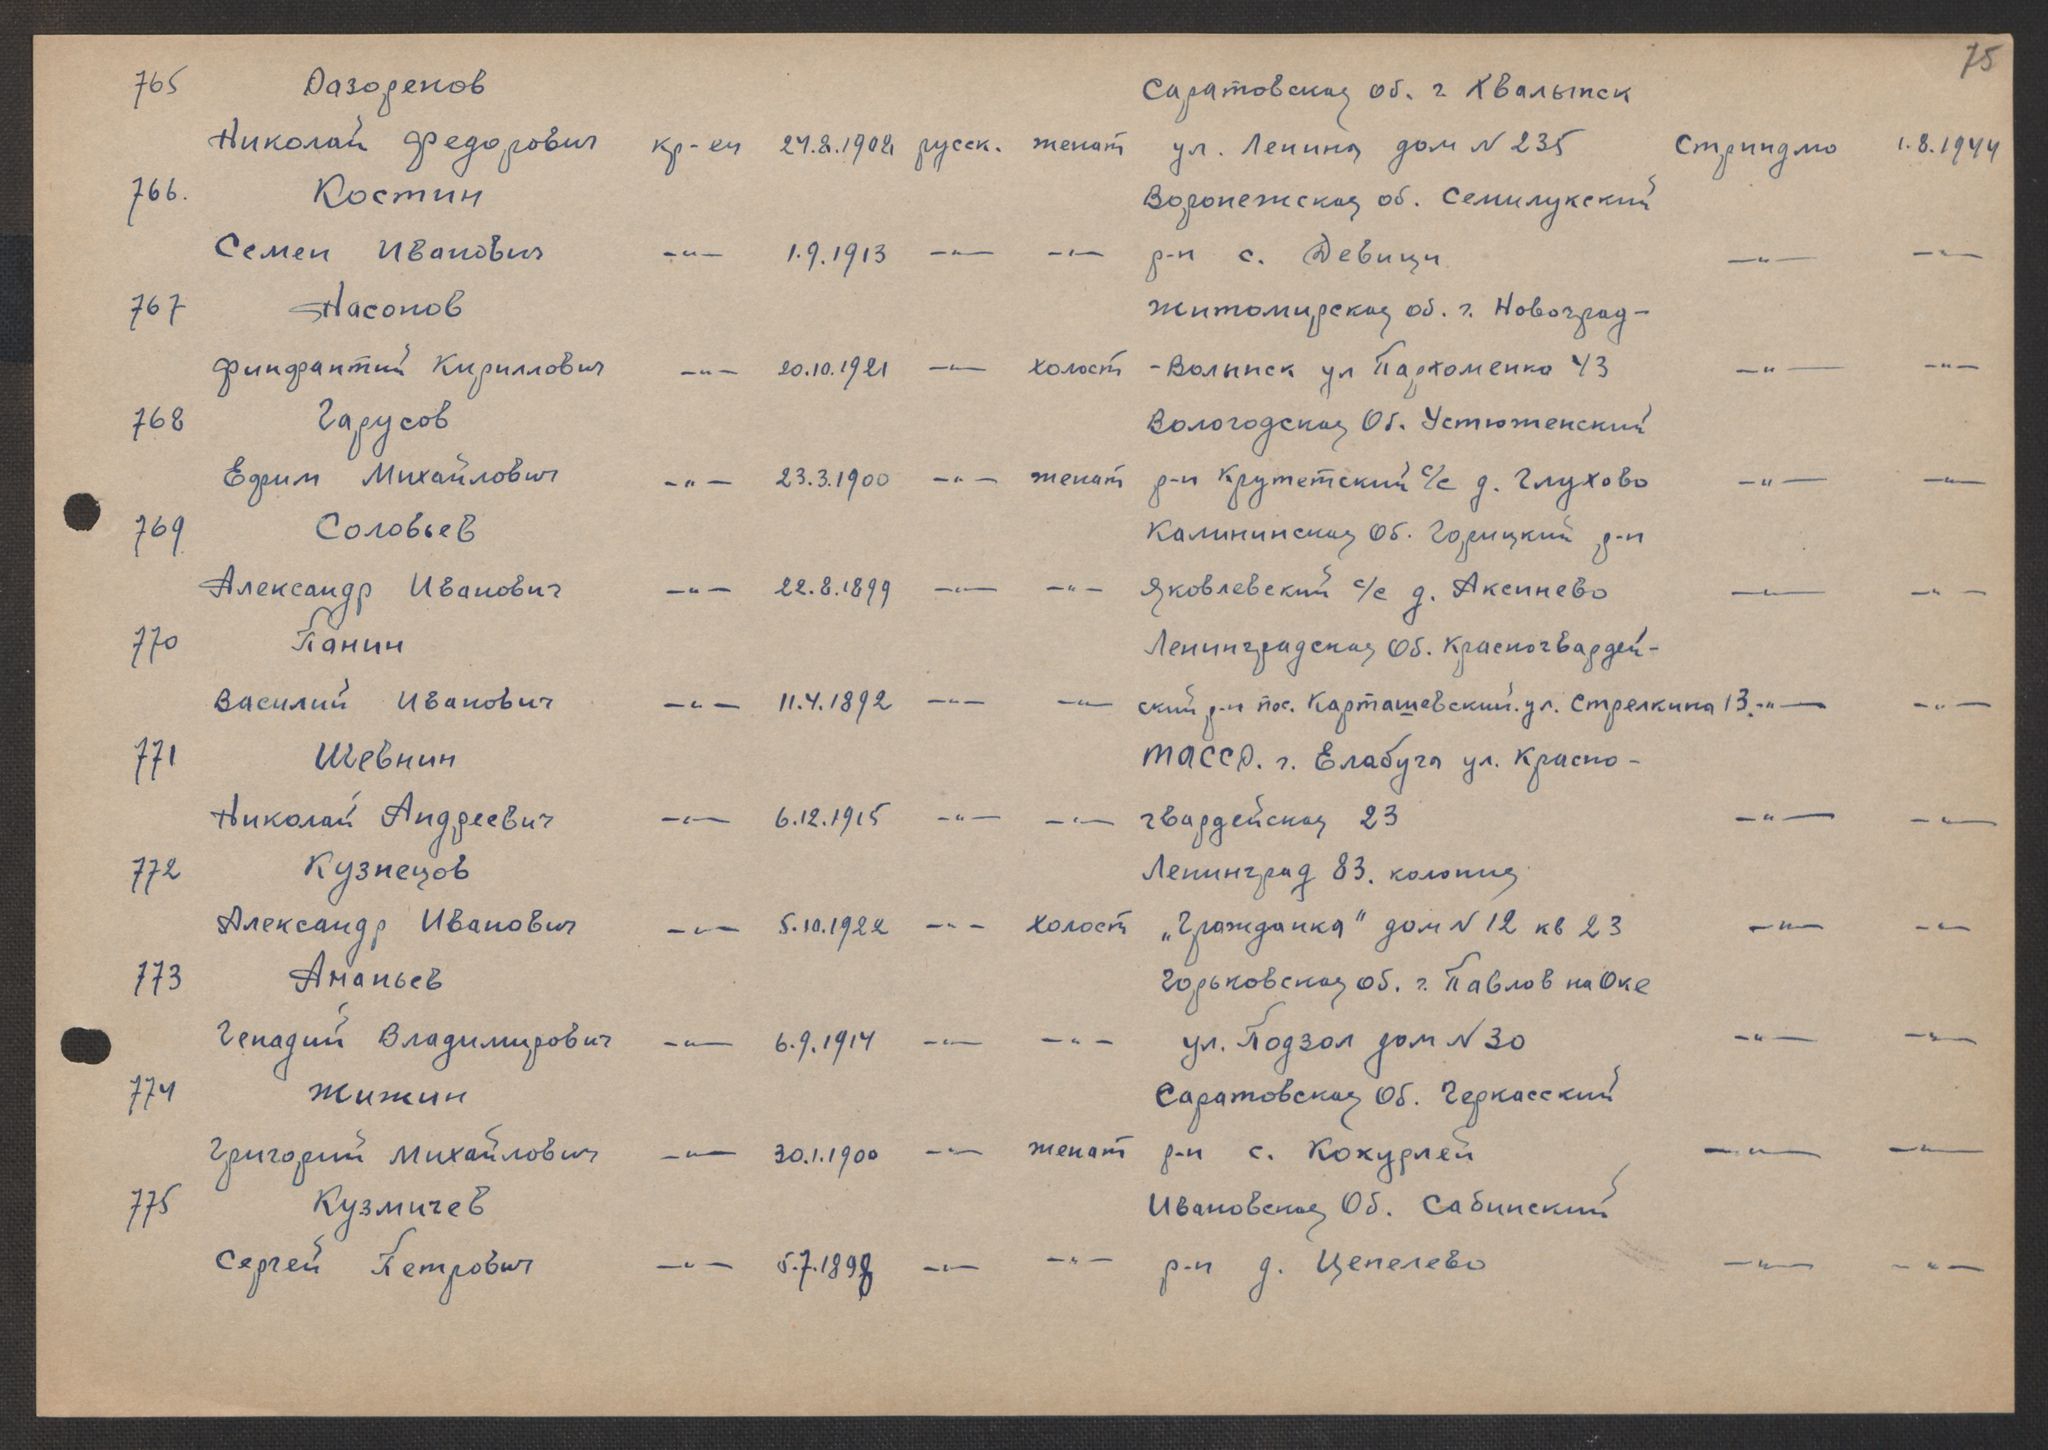 75
765 Разоренов Саратовская об. г Хвалынск
Николай Федорович кр-ец русск. женат ул. Ленина дом N 235 Стриндмо 1.8.1944
766. Костин Воронежская об. Семилукский
Семен Иванович —"— 1.9.1913 —"— —"— р-н с. Девици —"— —"—
767 Насонов Житомирская об. г. Новоград-
Финфантий Кириллович —"— 20.10.1921 —"— холост -Волынск ул Пархоменко 43 —"— —"—
768 Гарусов Вологодская Об. Устюженский
Ефим Михайлович —"— 23.3.1900 —"— женат р-н Крутетский с/с д. Глухово —"— —"—
769 Соловьев Калининская Об. Горицкий р-н
Александр Иванович —"— 22.8.1899 —"— —"— Яковлевский с/с д. Аксинево —"— —"—
770 Панин Ленинградская Об. Красногвардей-
Василий Иванович —"— 11.4.1892 —"— —"— ский р-н пос. Карташевский. ул. Стрелкина 13. —"— —"—
771 Шевнин ТАССР. г. Елабуга ул. Красно-
Николай Андреевич —"— 6.12.1915 —"— —"— гвардейская 23 —"— —"—
772 Кузнецов Ленинград 83. колония
Александр Иванович —"— 5.10.1922 —"— холост „Гражданка" дом N 12 кв 23 —"— —"—
773 Ананьев Горьковская об. г. Павлов на Оке
Генадий Владимирович —"— 6.9.1914 —"— —"— ул. Подзол дом N 30 —"— —"—
774 Жижин Саратовская Об. Черкасский
Григорий Михайлович —"— 30.1.1900 —"— женат р-н с. Кокурлей —"— —"—
775 Кузмичев Ивановская Об. Сабинский
Сергей Петрович —"— —"— —"— р-н д. Цепелево —"— —"—